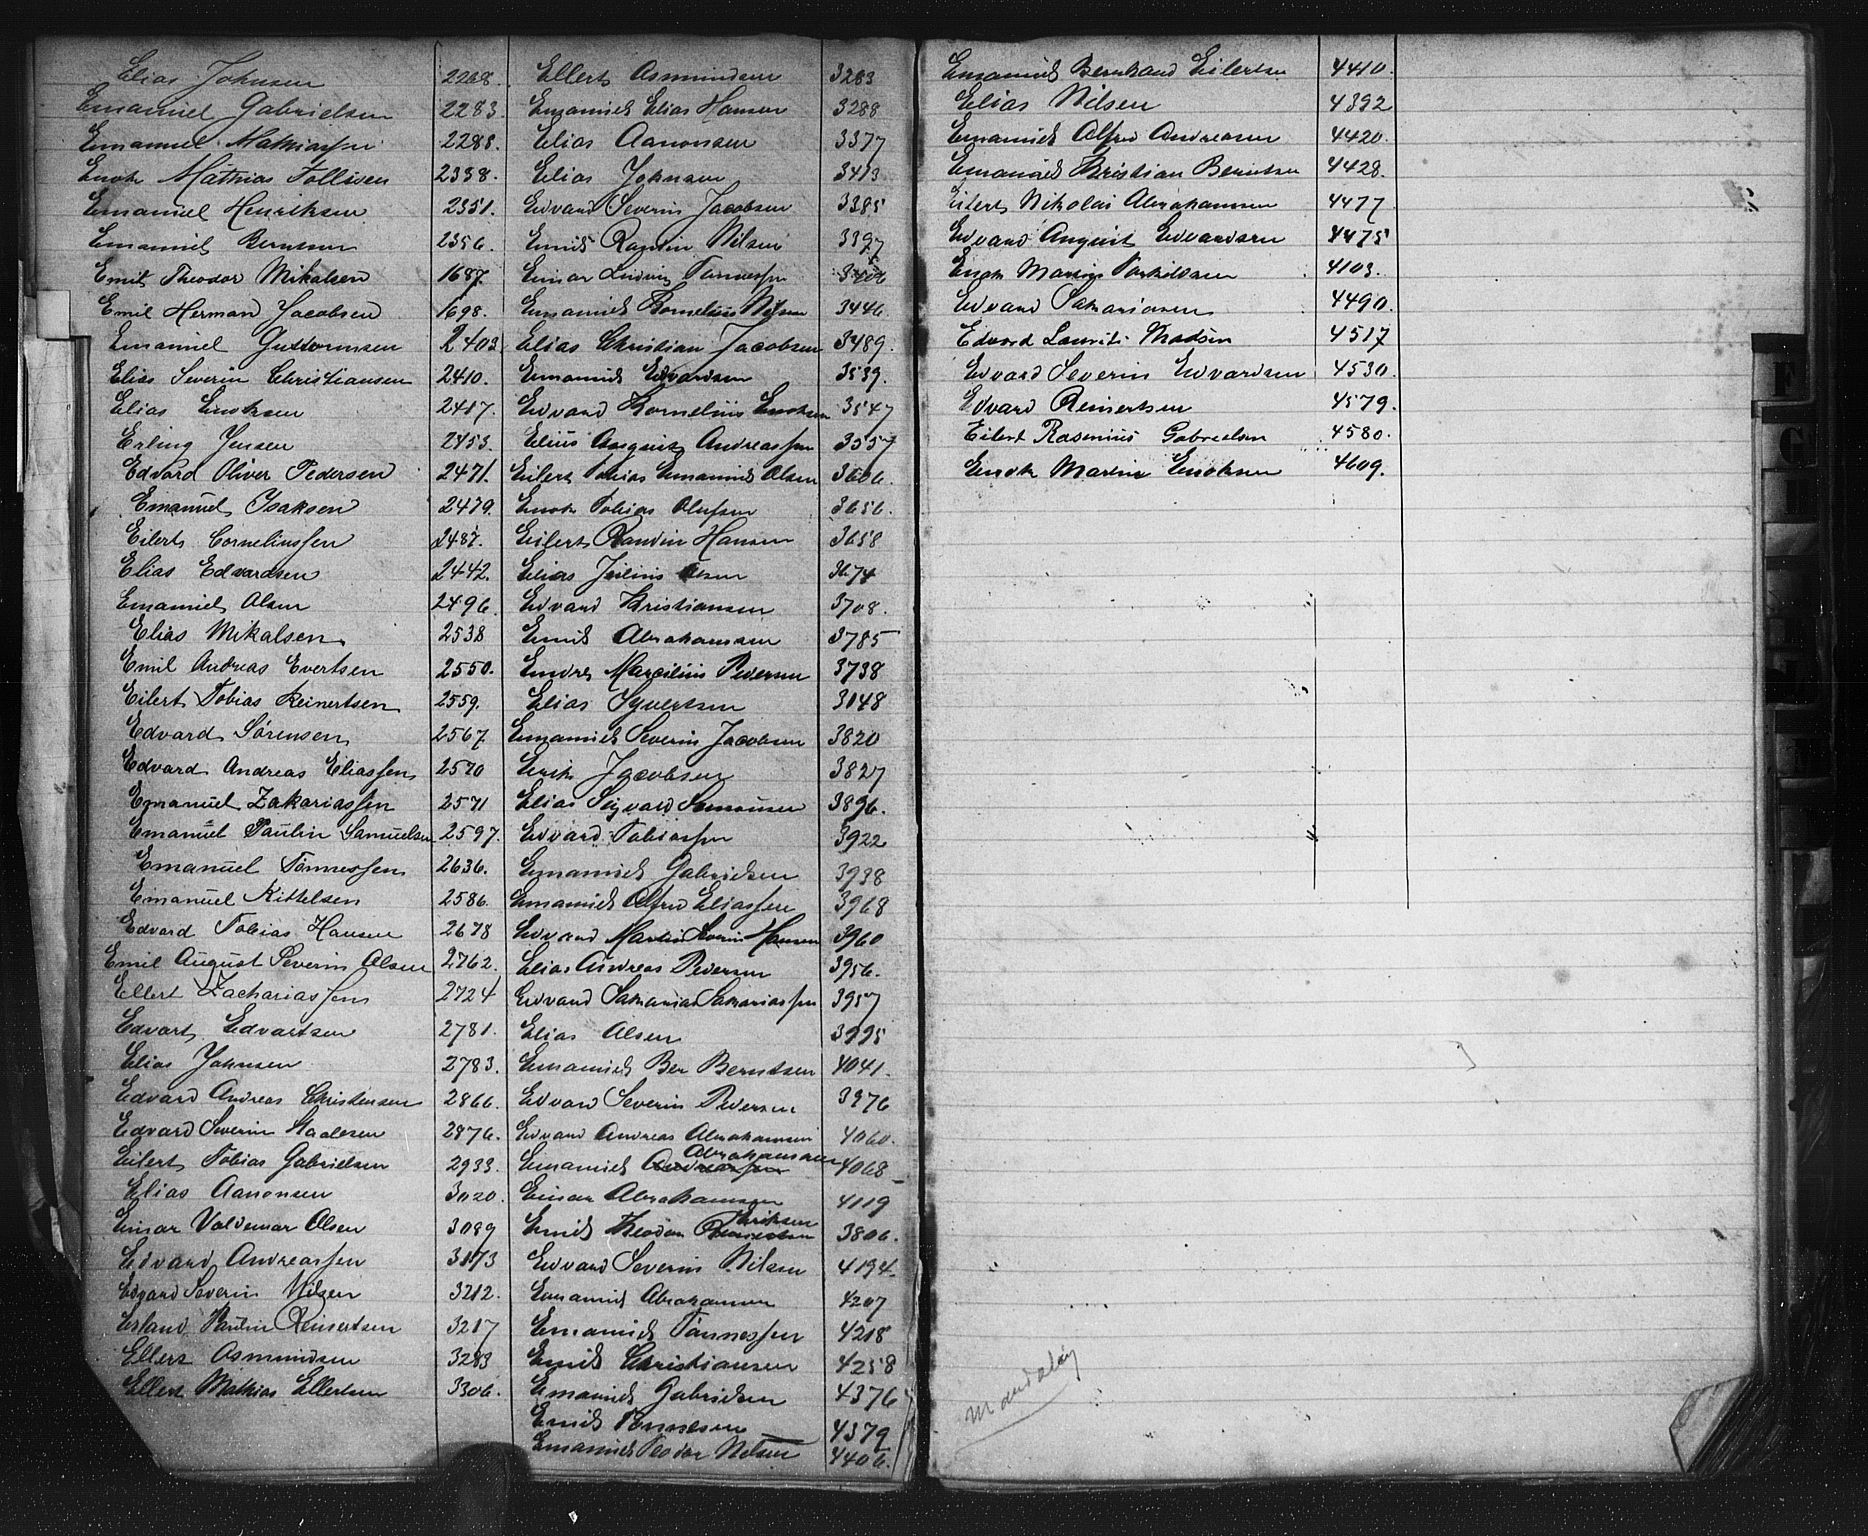 Elias Johnsen 2268.
Emanuel Gabrielsen 2283.
Emanuel Mathiassen 2288.
Enok Mathias Tollisen 2338.
Emanuel Henriksen 2351.
Emanuel Berntsen 2356.
Emil Theodor Mikalsen 1687.
Emil Herman Jacobsen 1698.
Emanuel Guttormsen 2403
Elias Severin Christiansen 2410.
Elias Enoksen 2417.
Erling Jensen 2453.
Edvard Oliver Pedersen 2471.
Emanuel Isaksen 2479.
Eilert Corneliussen 2487.
Elias Edvardsen 2442.
Emanuel Olsen 2496.
Elias Mikalsen 2538
Emil Andreas Evertsen 2550.
Eilert Tobias Reinertsen 2559.
Edvard Sørensen 2567
Edvard Andreas Eliassen 2570
Emanuel Zakariassen 2571
Emanuel Paulin Samuelsen 2597.
Emanuel Tønnessen 2636.
Emanuel Kittelsen 2586.
Edvard Tobias Hansen 2678
Emil August Severin Olsen 2762.
Ellert Zachariassen 2724
Edvart Edvartsen 2781.
Elias Johnsen 2783.
Edvard Andreas Christensen 2866.
Edvard Severin Staalesen 2876.
Eilert Tobias Gabrielsen 2933.
Elias Aanonsen 3020.
Einar Valdemar Olsen 3089
Edvard Andreassen 3173
Edvard Severin Nilsen 3212.
Erland Paulin Reinertsen 3217
Ellert Osmundsen 3283
Ellert Mathias Ellertsen 3306.
Ellert Osmundsen 3283
Emanuel Elias Hansen 3288
Elias Aanonsen 3377
Elias Johnsen 3413
Edvard Severin Jacobsen 3385
Emil Ramlin Nilsen 3397
Einar Ludvig Tønnessen
Emanuel Kornelius Nilsen 3446.
Elias Christian Jacobsen 3489.
Emanuel Edvardsen 3539.
Edvard Kornelius Enoksen 3547
Elius August Andreassen 3557
Eilert Tobias Emanuel Olsen 3606.
Enok Tobias Olufsen 3656.
Eilert Randin Hansen 3658
Elias Julius Olsen 3674
Edvard Kristiansen 3708.
Emil Abrahamsen 3785
Endre Marcelius Pedersen 3738
Elias Syvertsen 3048
Emanuel Severin Jacobsen 3820
Erik Jacobsen 3827
Elias Sigvard Simonsen 3896.
Edvard Tobiassen 3922
Emanuel Gabrielsen 3938
Emanuel Alfred Eliassen 3968
Edvard Martin Severin Hansen 3960
Elias Andreas Pedersen 3956.
Edvard Sakarias Sakariassen 3957
Elias Olsen 3995
Emanuel Ber Berntsen 4041.
Edvard Severin Pedersen 3976
Edvard Andreas Abrahamsen 4060.
Abrahamsen
Emanuel Andreassen 4068
Einar Abrahamsen 4119
Eriksen
Emil Theodor 3806.
Edvard Severin Nilsen 4194
Emanuel Abrahamsen 4207
Emanuel Tønnessen 4218
Emil Christiansen 4258
Emanuel Gabrielsen 4376
Emil Tønnesen 4379
Emanuel Teodor Nilsen 4406.
Emanuel Bernhard Eilertsen 4410.
Elias Nilsen 4392
Emanuel Alfred Andreasen 4420.
Emanuel Kristian Berntsen 4428.
Eilert Nikolai Abrahamsen 4477
Edvard August Edvardsen 4475
Enok Marius Torkildsen 4103.
Edvard Sakariasen 4490.
Edvard Laurits Madsen 4517
Edvard Severin Edvardsen 4530.
Edvard Reinertsen 4579.
Eilert Rasmus Gabrielsen 4580.
Enok Martin Enoksen 4609.
Mandaløy